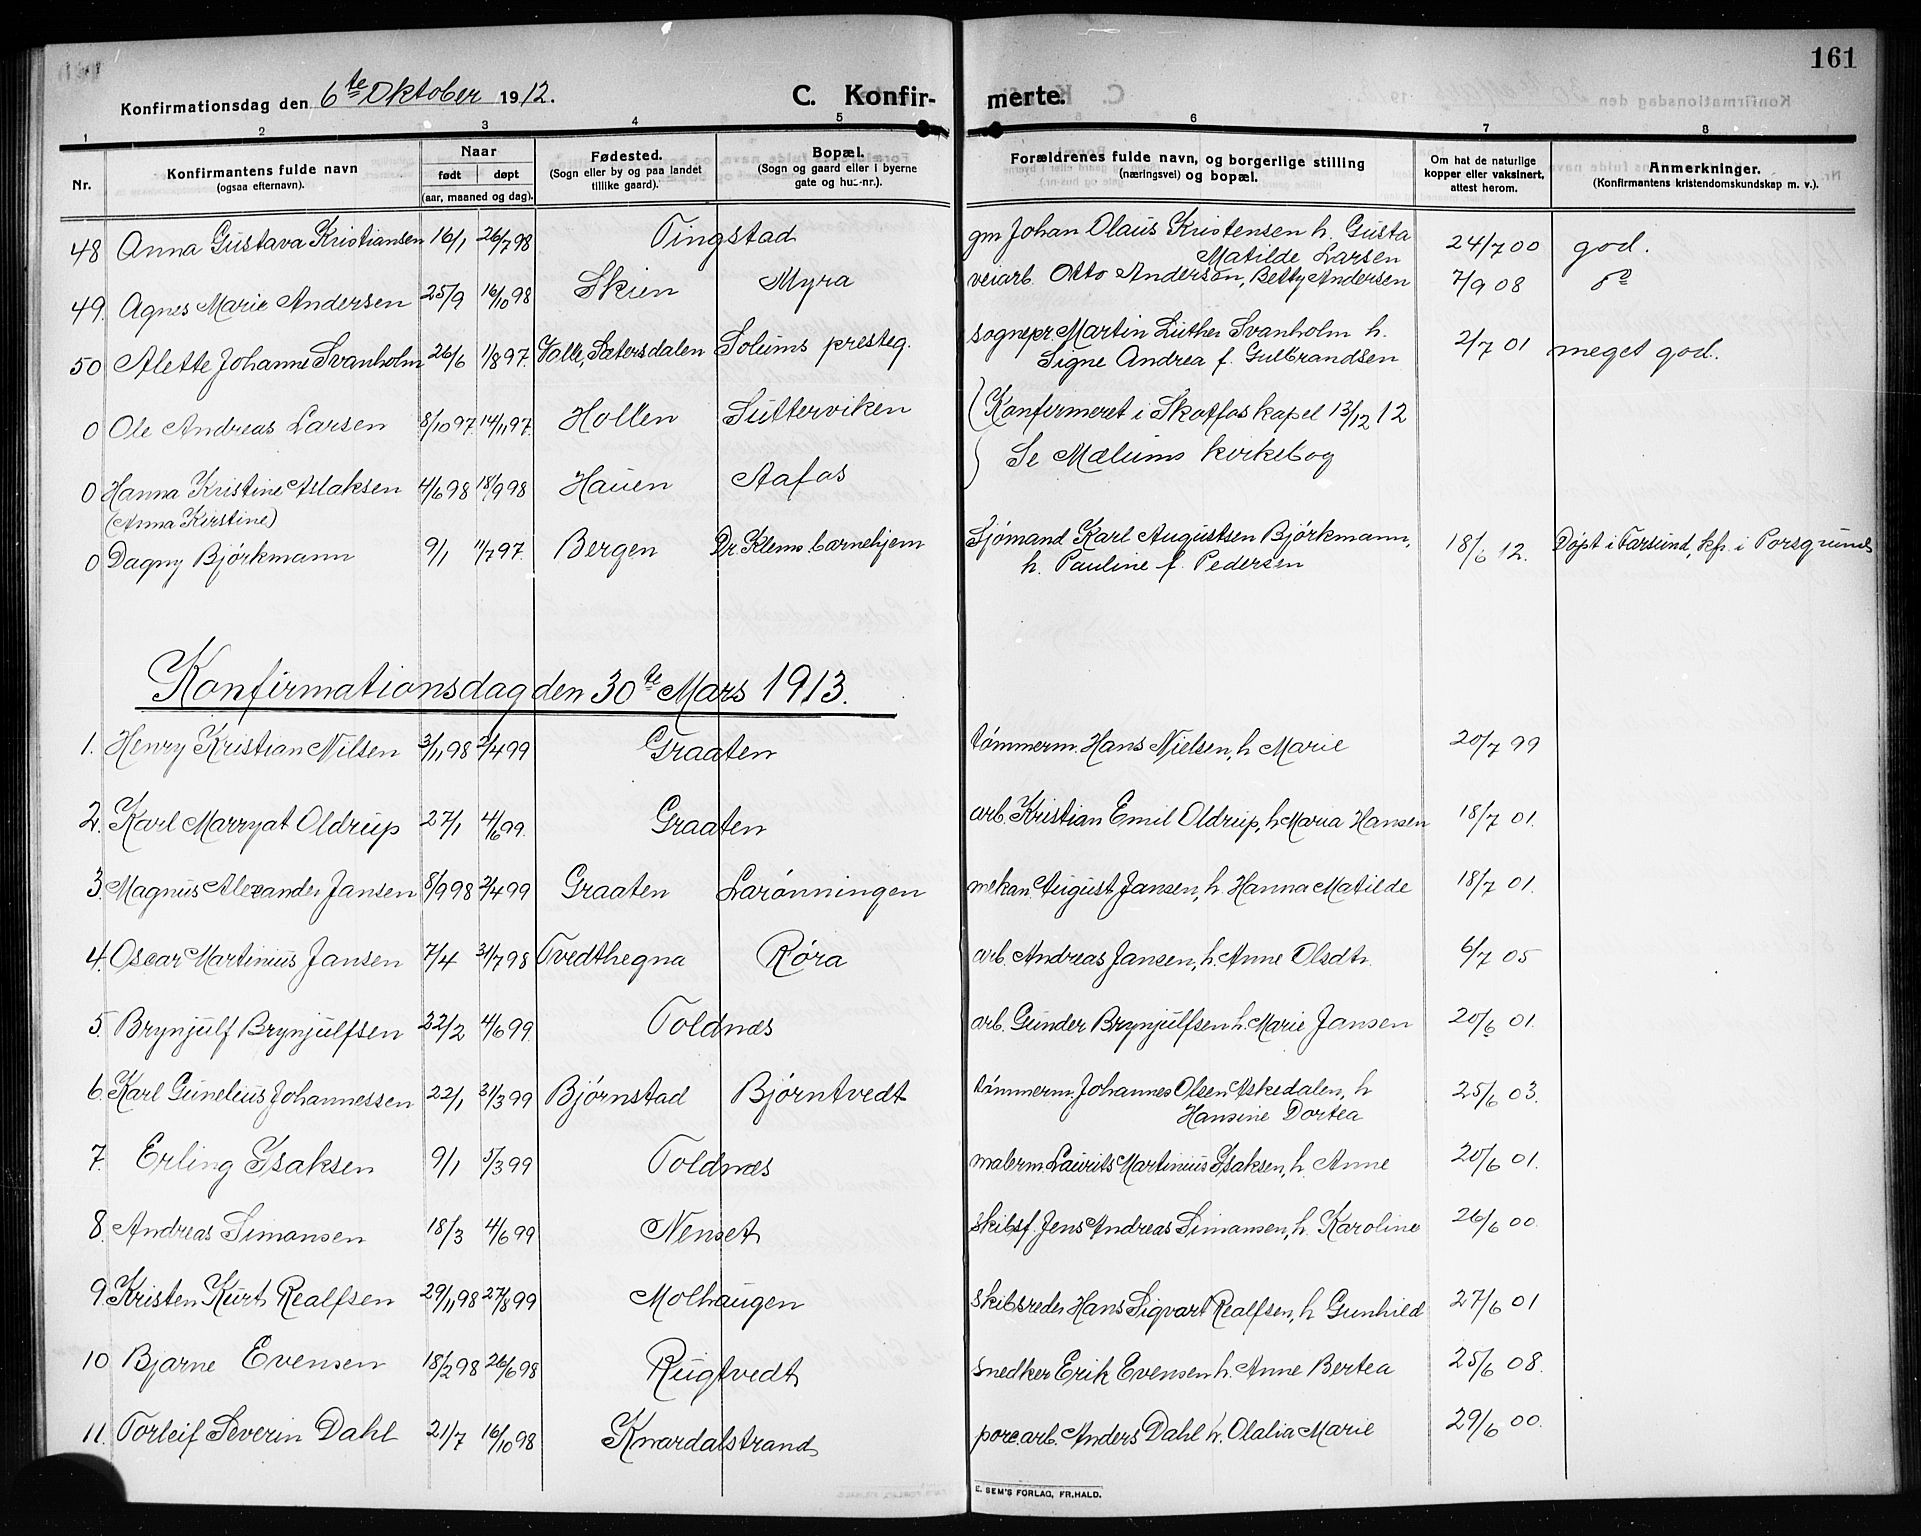 161
Konfirmationsdag den 6te Oktober 1912. C. Konfir- merte.
1 2 3 4 5 6 7 8
Nr. Konfirmantens fulde navn (ogsaa efternavn). Naar født døpt (aar, maaned og dag). Fødested. (Sogn eller by og paa landet tillike gaard). Bopæl. (Sogn og gaard eller i byerne gate og hus-nr.). Forældrenes fulde navn, og borgerlige stilling (næringsvei) og bopæl. Om hat de naturlige kopper eller vaksinert, attest herom. Anmerkninger. (Konfirmantens kristendomskundskap m. v.).
48 Anna Gustava Kristiansen 16/1 26/7 98 Tingstad gm Johan Olaus Kristensen h. Gusta Matilde Larsen 24/7 00 god.
49. Agnes Marie Andersen 25/9 16/10 98 Skien Myra veiarb. Otto Andersen, Betty Andersen 7/9 08 do
50 Alette Johanne Svanholm 26/6 1/8 97. Valle, Sætersdalen Solums presteg. sognepr. Martin Luther Svanholm h. Signe Andrea f. Gulbrandsen 2/7 01 meget god.
0 Ole Andreas Larsen 8/10 97 14/11 97. Hollen Sutterviken (Konfirmeret i Skotfos kapel 13/12 12
0 Hanna Kristine Aslaksen 4/6 98 18/9 98 Hauen Aafos ) Se Mælums kirkebog
(Anna Kirstine)
0 Dagny Bjørkmann 9/1 11/7 97. Bergen Dr. Klems barnehjem Sjømand Karl Augustsen Bjørkmann, h. Pauline f. Pedersen 18/6 12. Døpt i Farsund, kfr. i Porsgrund
Konfirmationsdag den 30te Mars 1913.
1. Henry Kristian Nilsen 3/11 98 2/4 99 Graaten tømmerm. Hans Nielsen, h. Marie 20/7 99
2. Karl Marryat Oldrup 27/1 4/6 99. Graaten arb. Kristian Emil Oldrup, h. Maria Hansen 18/7 01.
3. Magnus Alexander Jansen 8/9 98 2/4 99 Graaten Larønningen mekan. August Jansen, h. Hanna Matilde 18/7 01.
4. Oscar Martinius Jansen 7/4 31/7 98 Tvedthegna Røra arb. Andreas Jansen, h. Anne Olsdtr. 6/7 05
5. Brynjulf Brynjulfsen 22/2 4/6 99. Toldnæs arb. Gunder Brynjulfsen h. Marie Jansen 20/6 01.
6. Karl Gunelius Johannessen 22/1 31/3 99 Bjørnstad Bjørntvedt tømmerm. Johannes Olsen Askedalen, h Hansine Dortea 25/6 03.
7. Erling Isaksen 9/1 5/3 99 Toldnæs malerm. Laurits Martinius Isaksen, h. Anne 20/6 01.
8. Andreas Simonsen 18/3 4/6 99 Nenset skibsf. Jens Andreas Simonsen, h. Karoline 26/6 00.
9. Kristen Kurt Realfsen 29/11 98 27/8 99 Molhaugen skibsreder Hans Sigvart Realfsen, h Gunhild 27/6 01
10 Bjarne Evensen 18/2 98 26/6 98 Rugtvedt snedker Erik Evensen h. Anne Bertea 25/6 08.
11. Torleif Severin Dahl 21/7 16/10 98 Knardalstrand porc.arb. Anders Dahl h. Olalia Marie 29/6 00.
E. SEM'S FORLAG, FR.HALD.